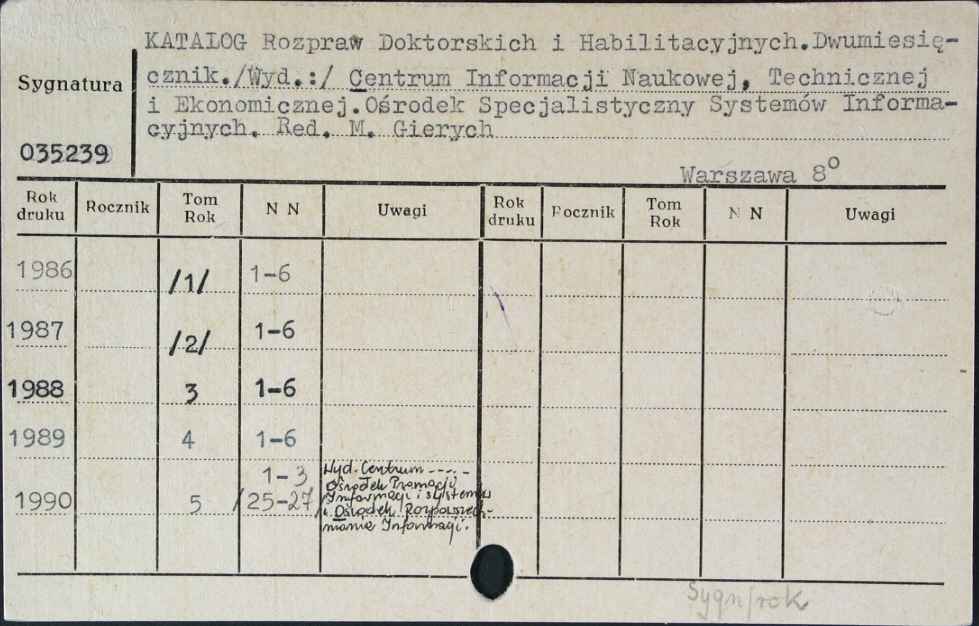 KATALOG Rozpraw Doktorskich i Habilitacyjnych.Dwumiesię-
cznik./Wyd.:/ Centrum Informacji Naukowej, Technicznej
i Ekonomicznej.Ośrodek Specjalistyczny Systemów Informa-
cyjnych. Red. M. Gierych
Sygnatura
035239
Warszawa 8°
Rok druku Rocznik Tom Rok N N Uwagi Rok druku Rocznik Tom Rok N N Uwagi
1986 /1/ 1-6
1987 /2/ 1-6
1988 3 1-6
1989 4 1-6
1990 5 1-3 /25-27/
Wyd. Centrum -----
Ośrodek Promocji
Informacji i systemów
i Ośrodek Rozpowszech-
niania Informacji.
Sygn/rok